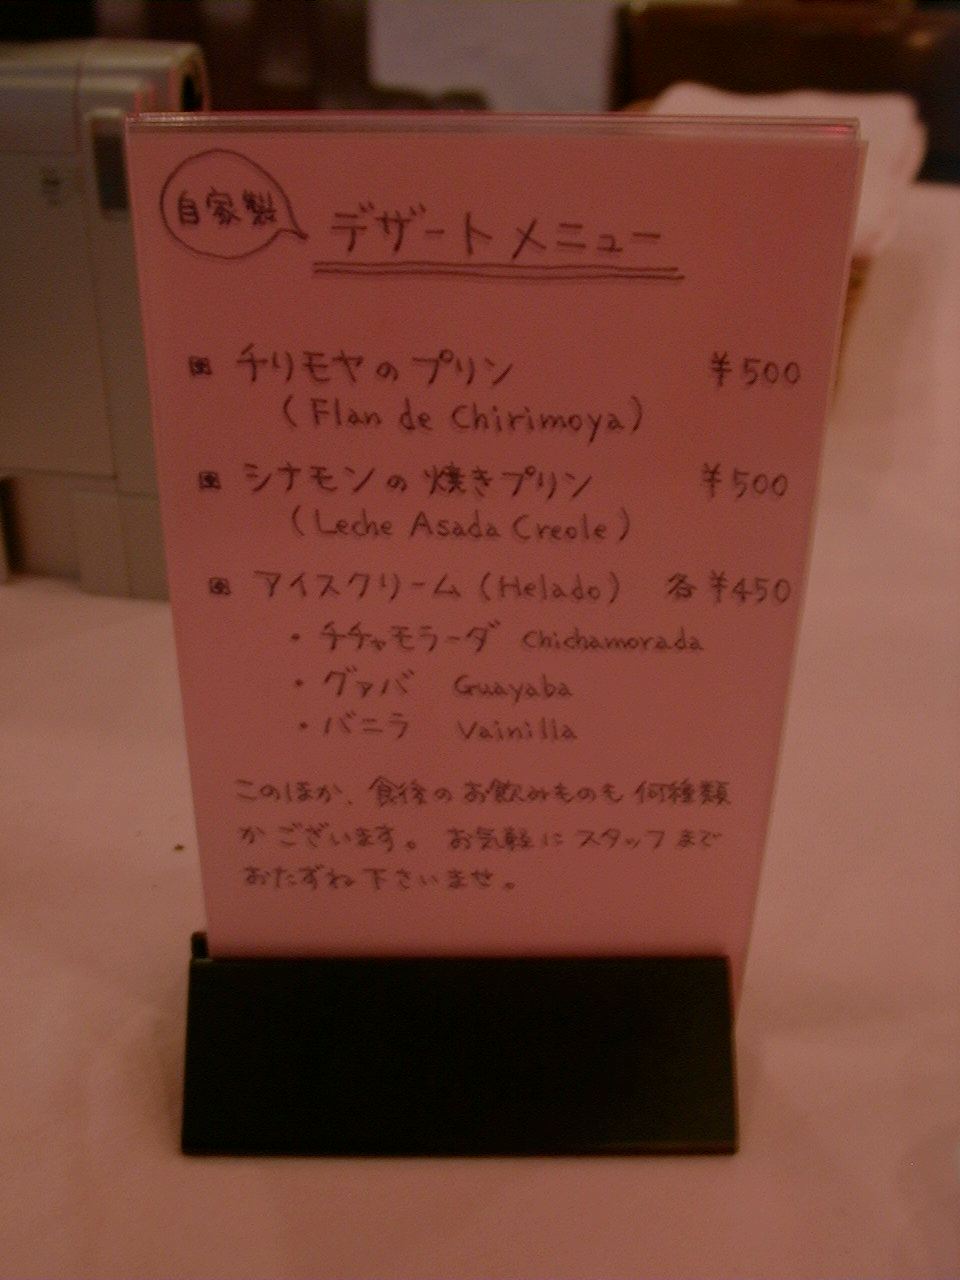 自家製
デザートメニュー
チリモヤのプリン ¥500
(Flan de Chirimoya)
シナモンの焼きプリン ¥500
(Leche Asada Creole)
アイスクリーム(Helado) 各¥450
・チチャモラーダ Chichamorada
・グァバ Guayaba
・バニラ Vainilla
このほか、食後のお飲みものも何種類
かございます。お気軽にスタッフまで
おたずね下さいませ。